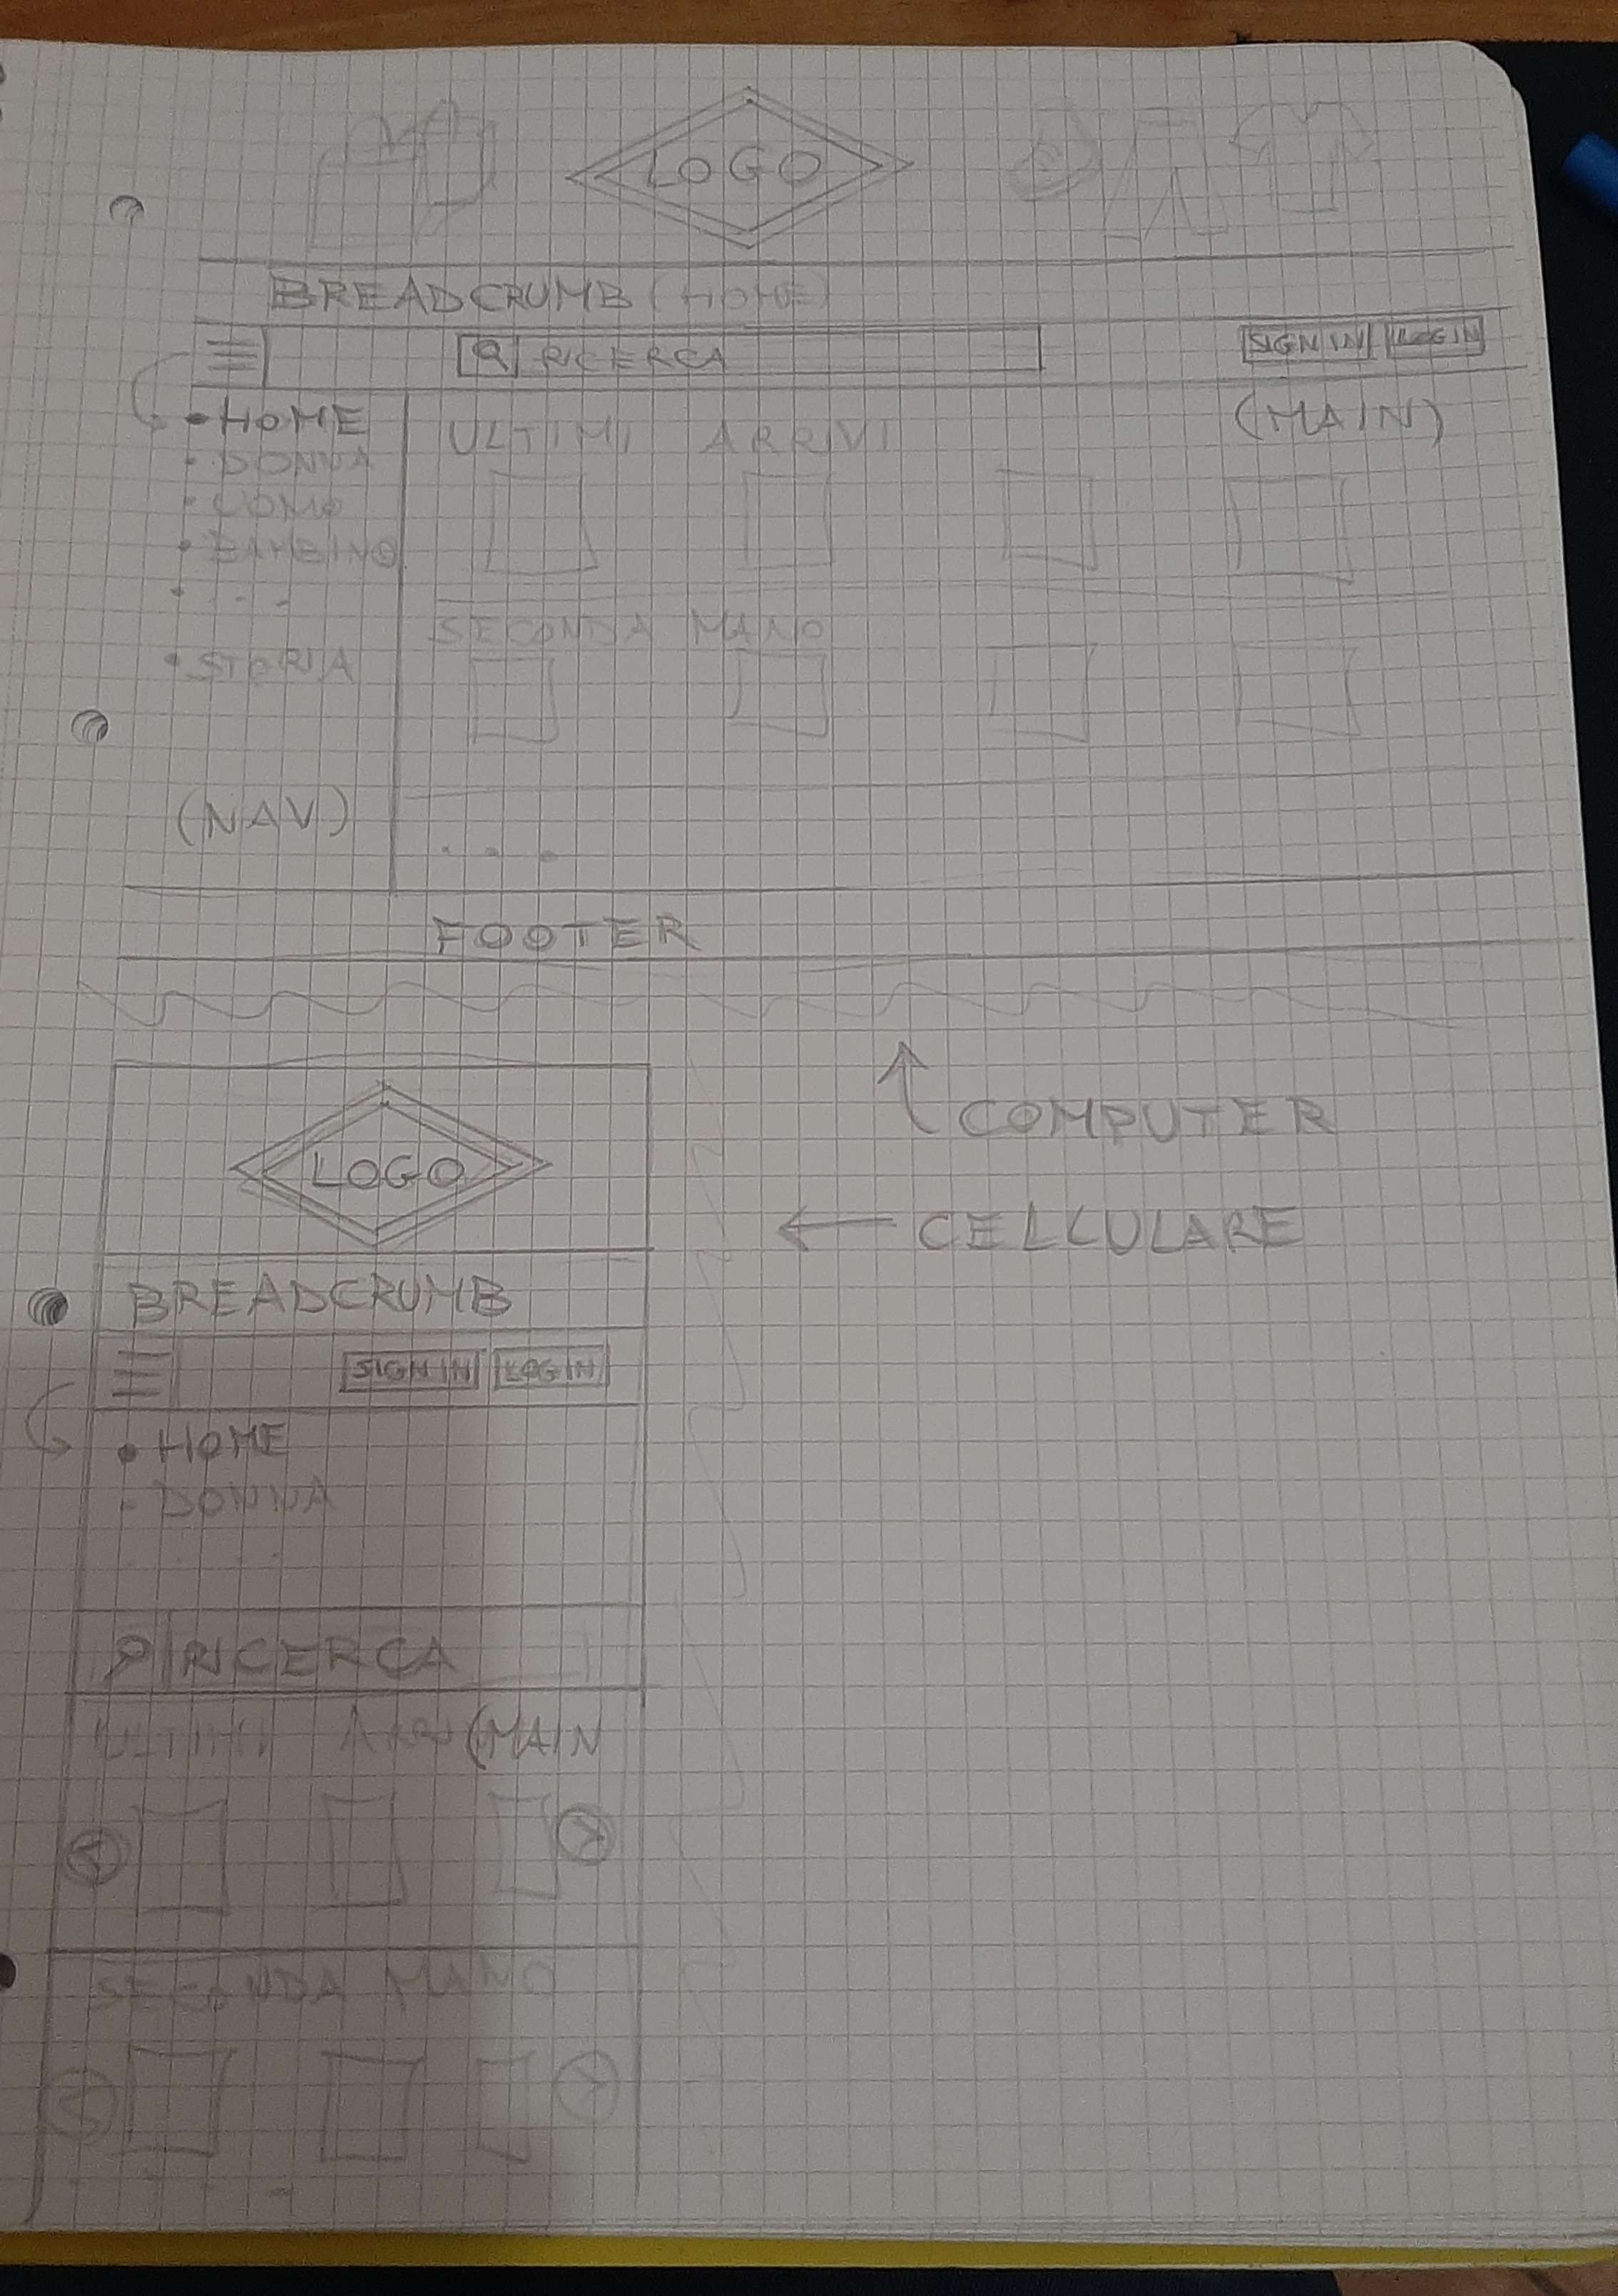 LOGO
BREADCRUMB (HOME)
RICERCA
SIGN IN LOGIN
• HOME
• DONNA
• UOMO
• BAMBINO
• - - -
• STORIA
(NAV)
ULTIMI ARRIVI
(MAIN)
SECONDA MANO
. . .
FOOTER
COMPUTER
CELLULARE
LOGO
BREADCRUMB
SIGN IN LOGIN
• HOME
- DONNA
. . . .
RICERCA
ULTIMI ARRI (MAIN
SECONDA MANO